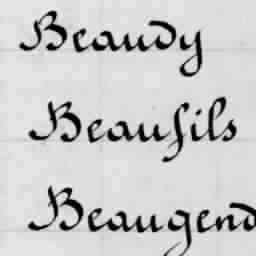 Beaudy
Beaufils
Beaugend